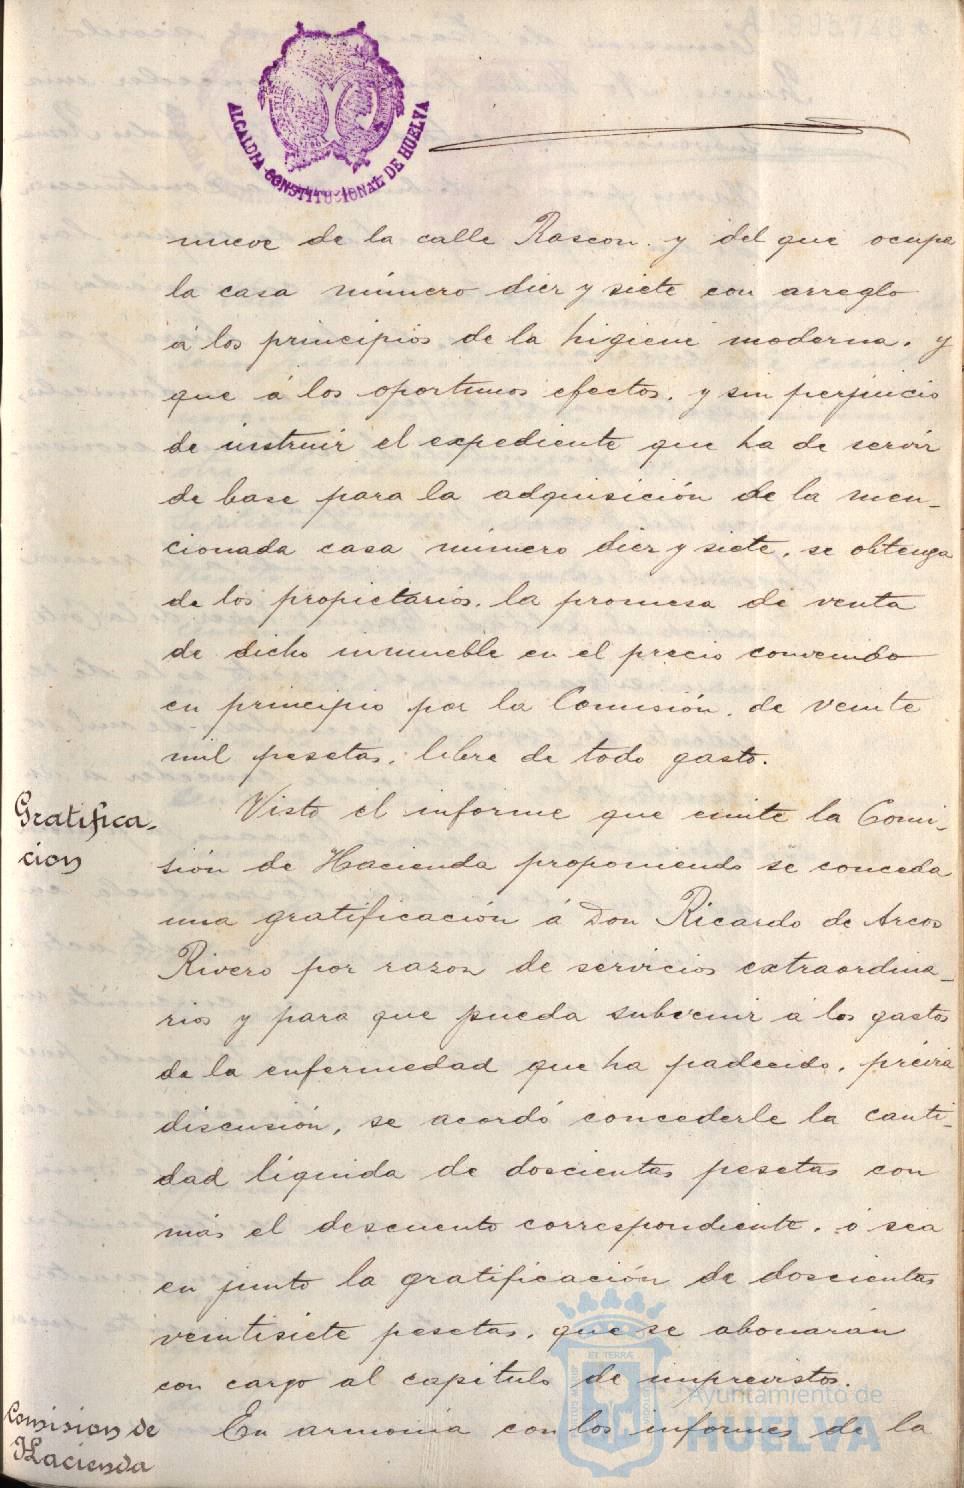 ALCALDIA CONSTITUCIONAL DE HUELVA
nueve de la calle Rascon. y del que ocupa
la casa número diez y siete con arreglo
á los principios de la higiene moderna. y
que á los oportunos efectos. y sin perjuicio
de instruir el expediente que ha de servir
de base para la adquisición de la men-
cionada casa número diez y siete. se obtenga
de los propietarios. la promesa de venta
de dicho inmueble en el precio convenido
en principio por la Comisión. de veinte
mil pesetas. libre de todo gasto.
Gratifica-
cion
Visto el informe que emite la Comi-
sión de Hacienda proponiendo se conceda
una gratificación á Don Ricardo de Arcos
Rivero por razon de servicios extraordina-
rios y para que pueda subvenir á los gastos
de la enfermedad que ha padecido. prévia
discusión, se acordó concederle la canti-
dad líquida de doscientas pesetas con
más el descuento correspondiente. ó sea
en junto la gratificación de doscientas
veintisiete pesetas. que se abonarán
con cargo al capítulo de imprevistos.
Comision de
Hacienda
En armonía con los informes de la
Ayuntamiento de
HUELVA